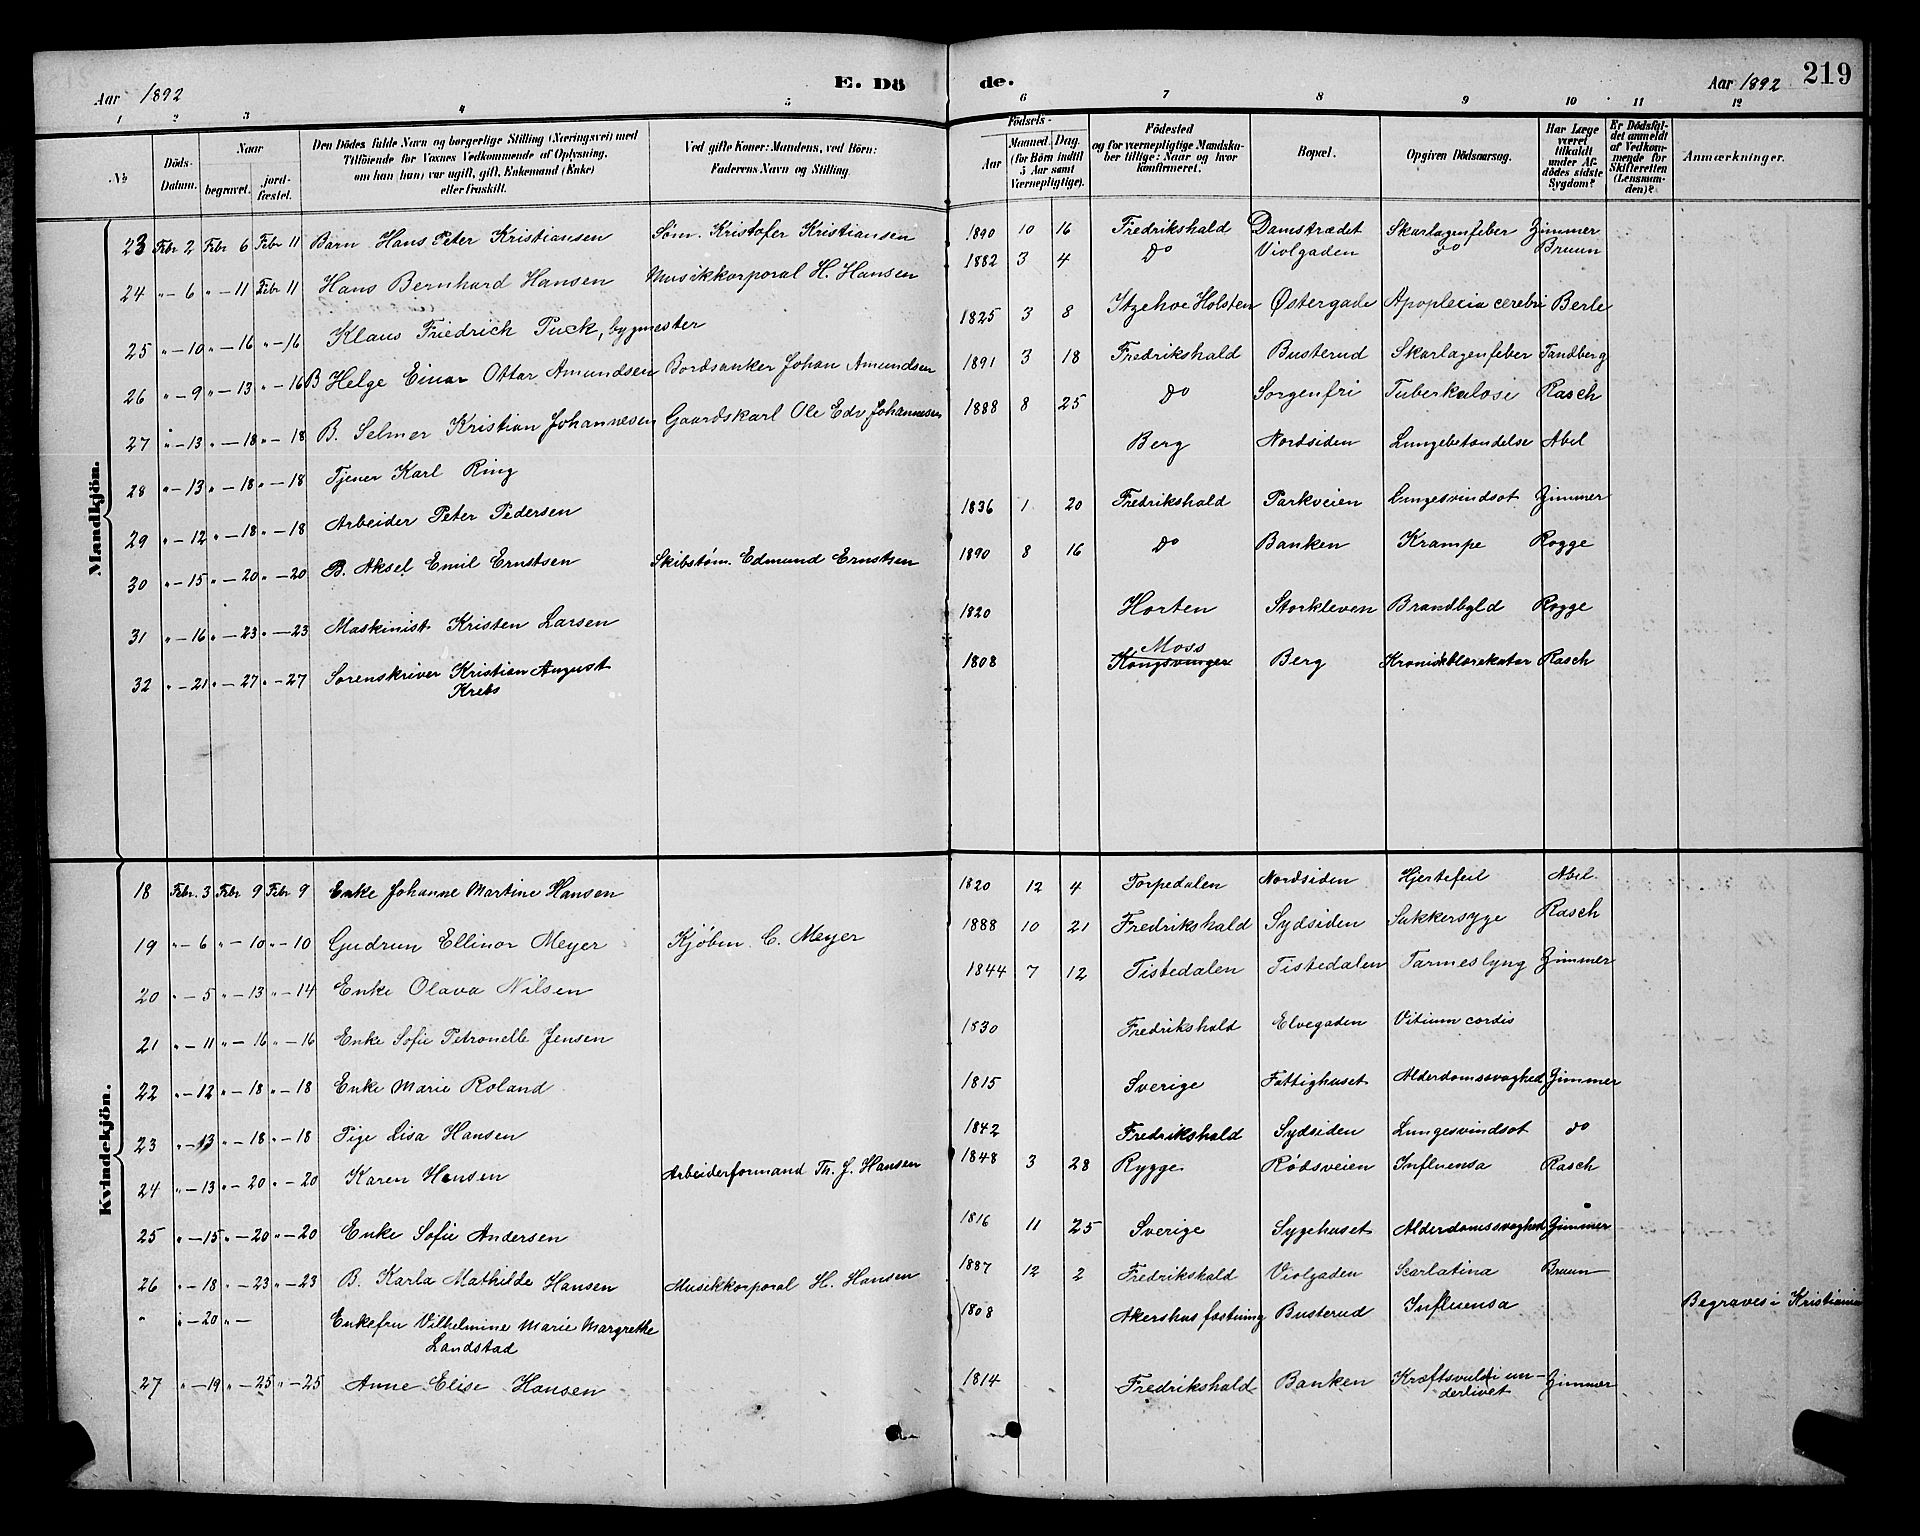 Aar 1892 E. Dö de. Aar 1892 219
1 2 3 4 5 6 7 8 9 10 11 12
No
Döds-Datum.
Naar
begravet.
jord-fæstet.
Den Dödes fulde Navn og borgerlige Stilling (Næringsvei) med
Tilföiende for Voxnes Vedkommende af Oplysning,
om han (hun) var ugift, gift, Enkemand (Enke)
eller fraskilt.
Ved gifte Koner: Mandens, ved Börn:
Faderens Navn og Stilling.
Födsels-
Aar
Maaned. Dag.
(for Börn indtil
5 Aar samt
Værnepligtige).
Födested
og for værnepligtige Mandska-
ber tillige: Naar og hvor
konfirmeret.
Bopæl.
Opgiven Dödsaarsag.
Har Læge
været
tilkaldt
under Af-
dödes sidste
Sygdom?
Er Dödsfal-
det anmeldt
af Vedkom-
mende for
Skifteretten
(Lensman-
den)?
Anmærkninger.
Mandkjön.
23 Febr 2 Febr 6 Febr 11 Barn Hans Peter Kristiansen Söm. Kristofer Kristiansen 1890 10 16 Fredrikshald Damstrædet Skarlagenfeber Zimmer
24 " - 6 " - 11 Febr 11 Hans Bernhard Hansen Musikkorporal H. Hansen 1882 3 4 Do Violgaden Do Bruun
25 " - 10 " - 16 " - 16 Klaus Friedrich Puck, bygmester 1825 3 8 Itzehoe Holsten Østergade Apoplexia cerebri Berle
26 " - 9 " - 13 " - 16 B Helge Einar Ottar Amundsen Bordsanker Johan Amundsen 1891 3 18 Fredrikshald Busterud Skarlagenfeber Tandberg
27 " - 13 " - 18 " - 18 B. Selmer Kristian Johannesen Gaardskarl Ole Edv. Johannesen 1888 8 25 Do Sorgenfri Tuberkulose Rasch
28 " - 13 " - 18 " - 18 Tjener Karl Ring Berg Nordsiden Lungebetændelse Abel
29 " - 12 " - 18 " - 18 Arbeider Peter Pedersen 1836 1 20 Fredrikshald Parkveien Lungesvindsot Zimmer
30 " - 15 " - 20 " - 20 B. Aksel Emil Ernstsen Skibstøm. Edmund Ernstsen 1890 8 16 Do Banken Krampe Rogge
31 " - 16 " - 23 " - 23 Maskinist Kristen Larsen 1820 Horten Storkleven Brandbyld Rogge
32 " - 21 " - 27 " - 27 Sorenskriver Kristian August 1808 Moss Kongsvinger Berg Kronisk blærekatar Rasch
Krebs
Kvindekjön.
18 Febr. 3 Febr 9 Febr 9 Enke Johanne Martine Hansen 1820 12 4 Torpedalen Nordsiden Hjertefeil Abel
19 " - 6 " - 10 " - 10 Gudrun Ellinor Meyer Kjøbm. C. Meyer 1888 10 21 Fredrikshald Sydsiden Sukkersyge Rasch
20 " - 5 " - 13 " - 14 Enke Olava Nilsen 1844 7 12 Tistedalen Tistedalen Tarmeslyng Zimmer
21 " - 11 " - 16 " - 16 Enke Sofie Petronelle Jensen 1830 Fredrikshald Elvegaden Vitium cordis
22 " - 12 " - 18 " - 18 Enke Marie Roland 1815 Sverige Fattighuset Alderdomssvaghed Zimmer
23 " - 13 " - 18 " - 18 Pige Lisa Hansen 1842 Fredrikshald Sydsiden Lungesvindsot do
24 " - 13 " - 20 " - 20 Karen Hansen Arbeiderformand Th. J. Hansen 1848 3 28 Rygge Rødsveien Influensa Rasch
25 " - 15 " - 20 " - 20 Enke Sofie Andersen 1816 11 25 Sverige Sygehuset Alderdomssvaghed Zimmer
26 " - 18 " - 23 " - 23 B. Karla Mathilde Hansen Musikkorporal H. Hansen 1887 12 2 Fredrikshald Violgaden Scarlatina Bruun
" " - 20 " - Enkefru Vilhelmine Marie Margrethe 1808 Akershus fæstning Busterud Influensa Begraves i Kristiania
Landstad
27 " - 19 " - 25 " - 25 Anne Elise Hansen 1814 Fredrikshald Banken Kræftsvulst i un- Zimmer
derlivet